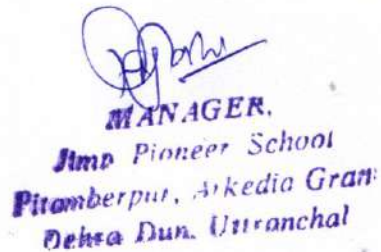 MANAGER,
Jimp Pioneer School
Pitamberpur, Arkedia Gran
Dehra Dun. Uttranchal